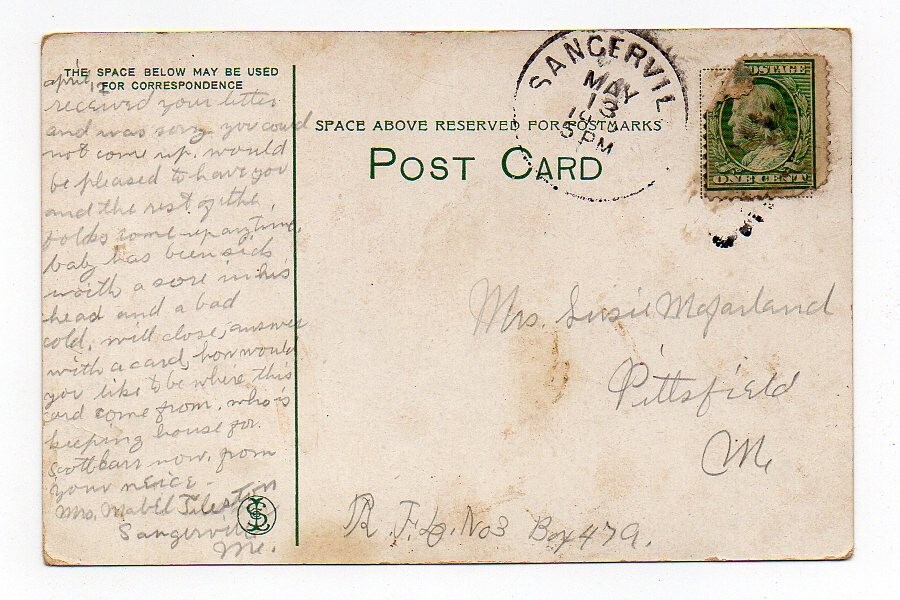 THE SPACE BELOW MAY BE USED
FOR CORRESPONDENCE
april 12
received your letter
and was sorry you could
not come up. would
be pleased to have you
and the rest of the
folks come up anytime,
baby has been sick
with a sore in his
head and a bad
cold, will close, answer
with a card, how would
you like to be where this
card come from, who is
keeping house for
now, from
your neice -
Mrs. Mabel
Sangerville
Me.
SANGERVIL
MAY
13
5 PM
SPACE ABOVE RESERVED FOR POSTMARKS
POST CARD
POSTAGE
ONE CENT
Mrs. Susie Mcfarland
Pittsfield
Me
R. F. D. No 3 Box 479.